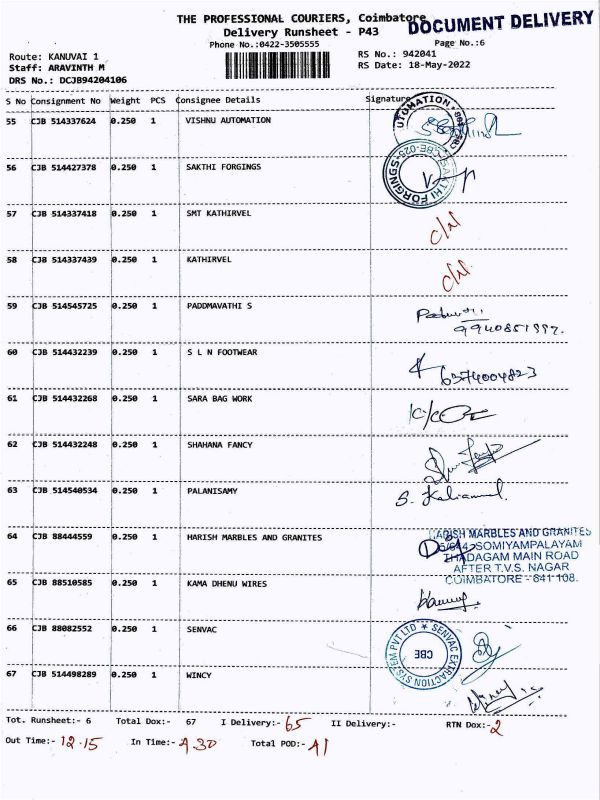 THE PROFESSIONAL COURIERS, Coimbatore
DOCUMENT DELIVERY
Delivery Runsheet - P43
Phone No.:0422-3505555
Page No.:6
Route: KANUVAI 1
RS No.: 942041
Staff: ARAVINTH M
RS Date: 18-May-2022
DRS No.: DCJB94204106
S No Consignment No Weight PCS Consignee Details Signature
55 CJB 514337624 0.250 1 VISHNU AUTOMATION
UTOMATION
56 CJB 514427378 0.250 1 SAKTHI FORGINGS
SAKTHI FORGINGS
57 CJB 514337418 0.250 1 SMT KATHIRVEL
58 CJB 514337439 0.250 1 KATHIRVEL
59 CJB 514545725 0.250 1 PADDMAVATHI S
60 CJB 514432239 0.250 1 S L N FOOTWEAR
6374004823
61 CJB 514432268 0.250 1 SARA BAG WORK
62 CJB 514432248 0.250 1 SHAHANA FANCY
63 CJB 514540534 0.250 1 PALANISAMY
S. Kaliammal.
64 CJB 88444559 0.250 1 HARISH MARBLES AND GRANITES
HARISH MARBLES AND GRANITES
SOMIYAMPALAYAM
THADAGAM MAIN ROAD
AFTER T.V.S. NAGAR
COIMBATORE - 641 108.
65 CJB 88510585 0.250 1 KAMA DHENU WIRES
66 CJB 88082552 0.250 1 SENVAC
SENVAC EXTRACTION SYSTEM PVT LTD
CBE
67 CJB 514498289 0.250 1 WINCY
Tot. Runsheet:- 6 Total Dox:- 67 I Delivery:- 65 II Delivery:- RTN Dox:- 2
Out Time:- 12.15 In Time:- 4.30 Total POD:- 41